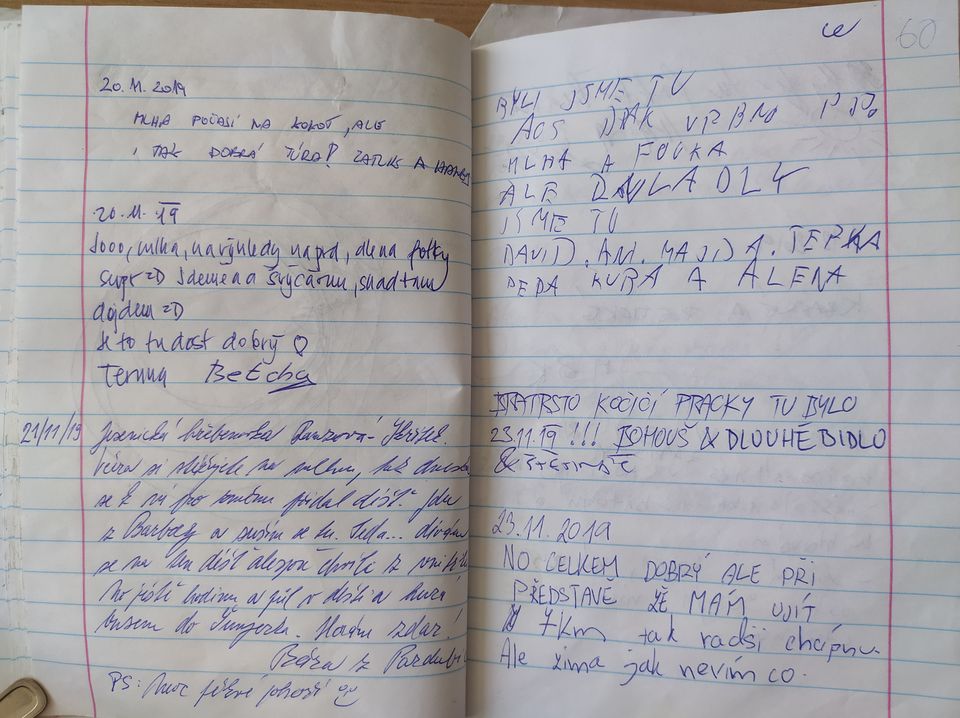 20.11.2019
MLHA POČASÍ NA KOKOT, ALE
I TAK DOBRÁ TÚRA!
20.11.19
Jooo, mlha, na výhledy naprd, ale na fotky
supr =D Jdeme na Švýcárnu, snad tam
dojdem =D
Je to tu dost dobrý
Terinua BeEcha
21/11/19 Jesenická hřebenovka Ramzová - Skřítek.
Včera si stěžujete na mlhu, tak dneska
se k ní přidal déšť. Jdu
z Barborky a suším se tu. Teda... dívám
se na ten déšť alespoň chvíli z
Ještě hodinu a půl v dešti a hurá
busem do Šumperka. Horám zdar!
Bára z Pardubic
PS: Moc pěkné
60
BYLI JSME TU
AOS DRAK VRBNO P.P.
MLHA A FOUKA
ALE
JSME TU
DAVID, ANI, MAJDA, TERKA
PEPA KUBA A ALENA
BRATRSTO KOČIČÍ PRACKY TU BYLO
23.11.19 !!! BOHOUŠ & DLOUHÉ BIDLO
& ŠTĚTINÁČ
23.11.2019
NO CELKEM DOBRÝ ALE PŘI
PŘEDSTAVĚ ŽE MÁM UJÍT
7km tak radši chcípnu.
Ale zima jak nevím co.